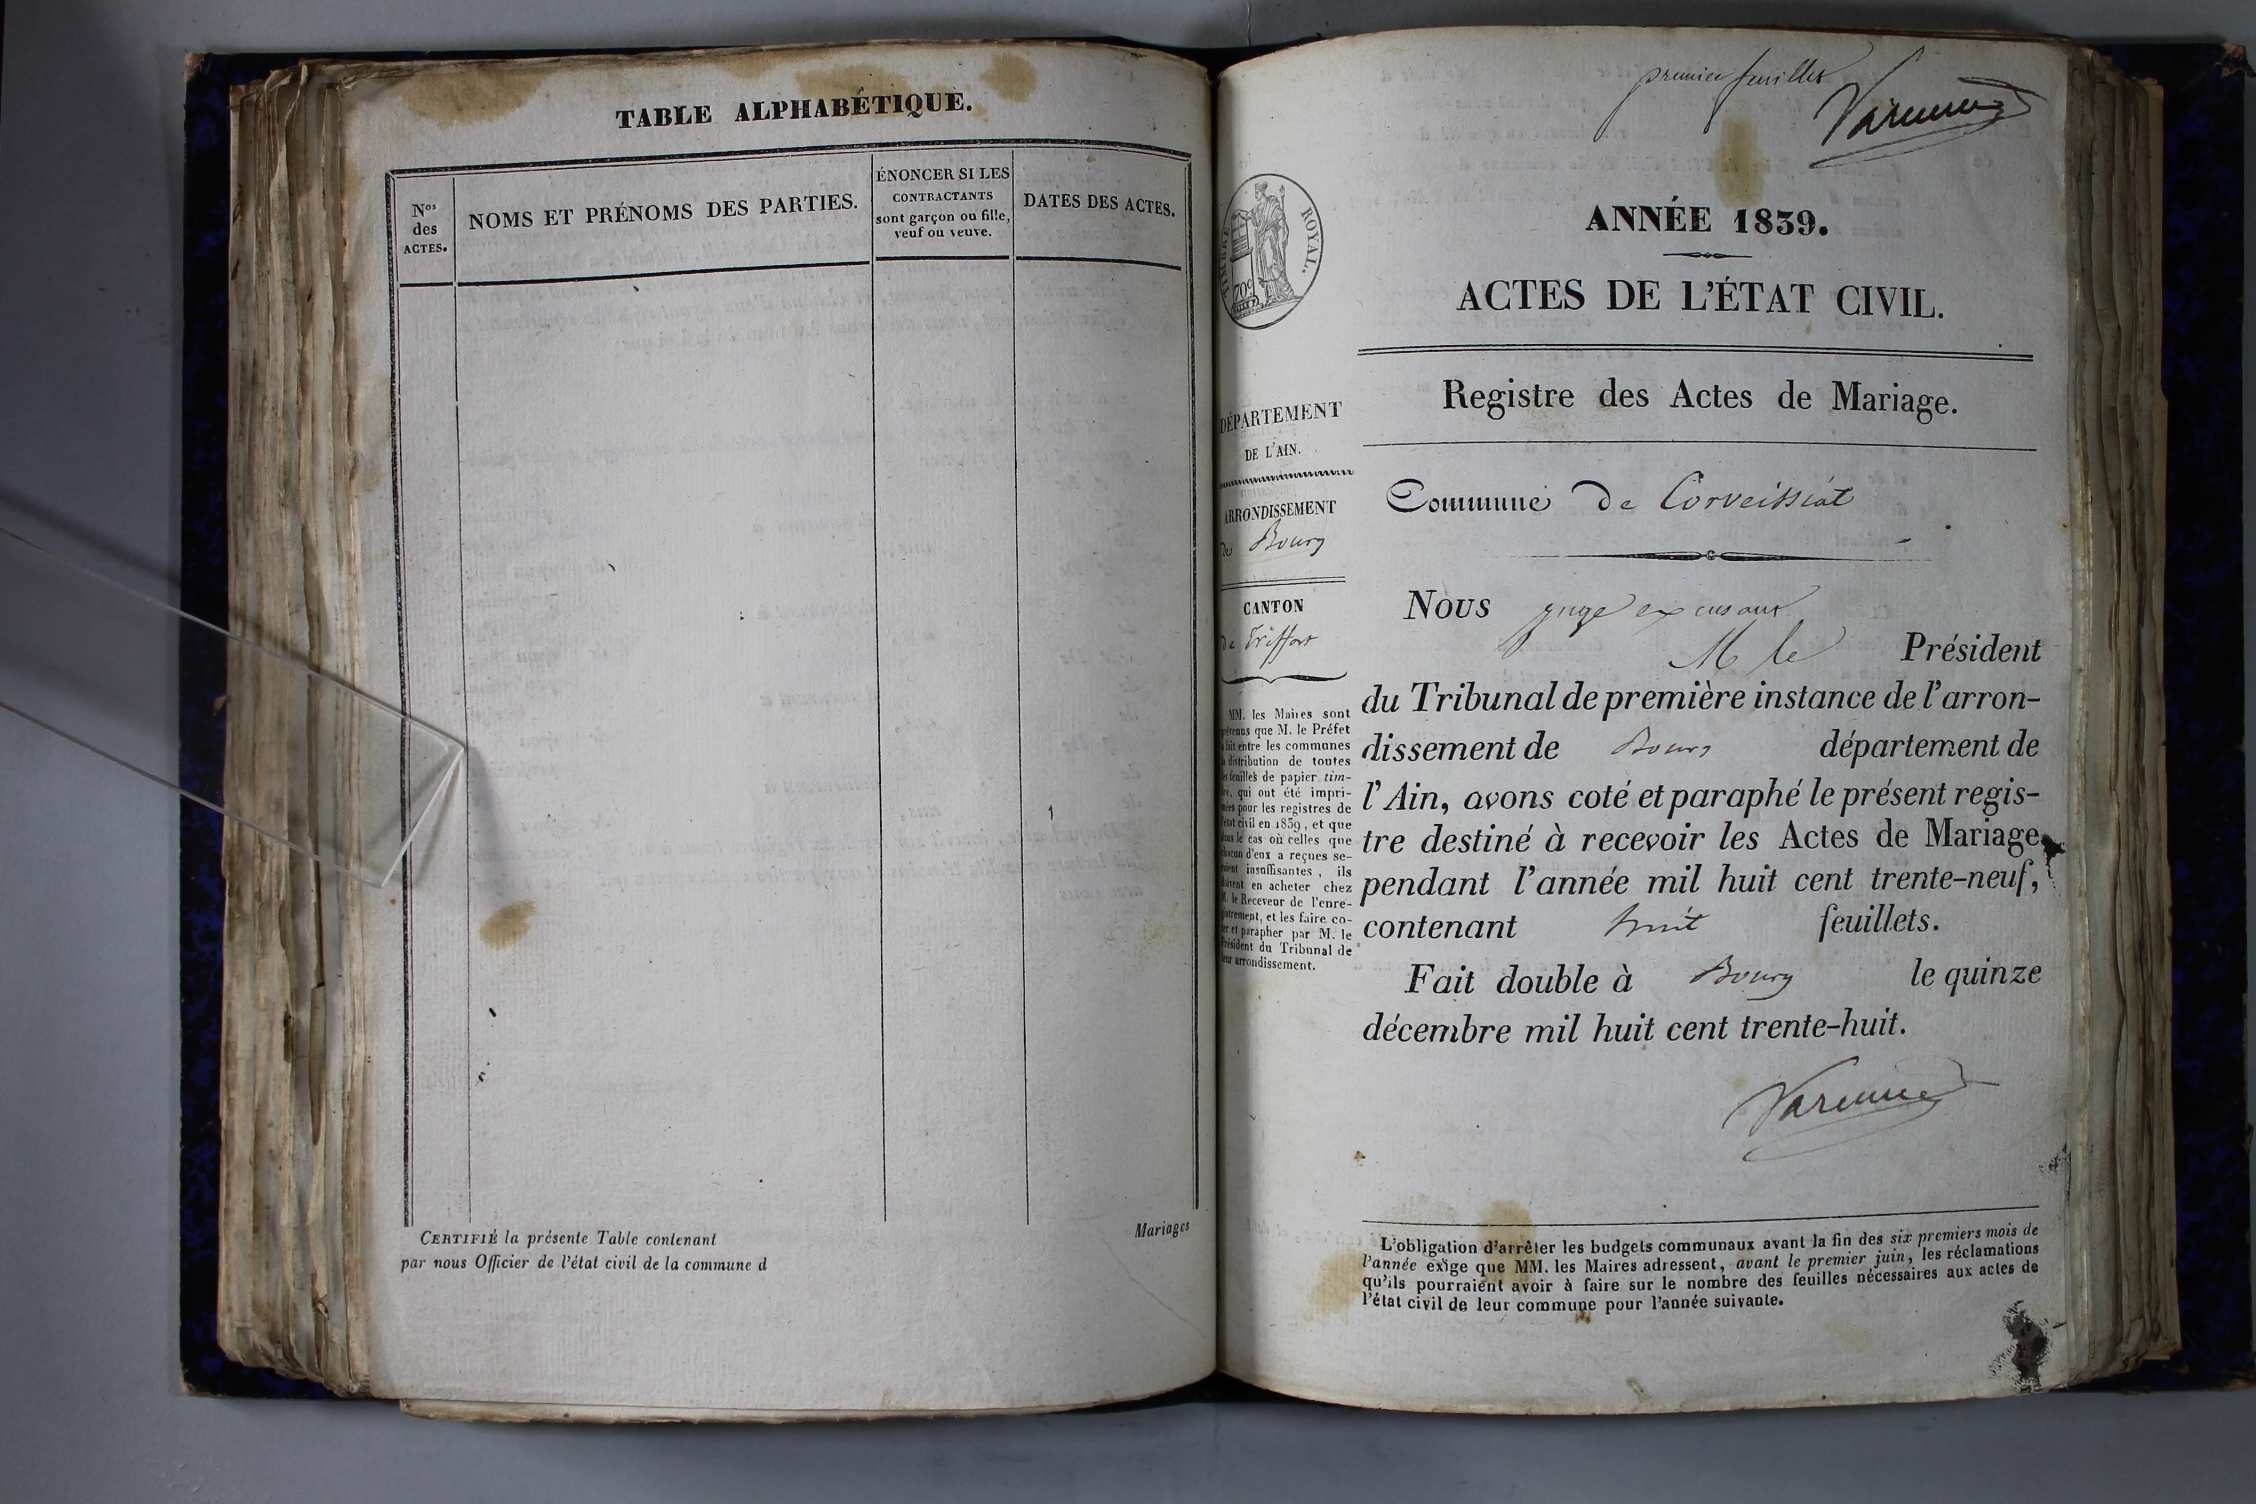 TABLE ALPHABÉTIQUE.
Nos
des
ACTES.
NOMS ET PRÉNOMS DES PARTIES.
ÉNONCER SI LES
CONTRACTANTS
sont garçon ou fille,
veuf ou veuve.
DATES DES ACTES.
CERTIFIÉ la présente Table contenant
par nous Officier de l'état civil de la commune d
Mariages
premier feuillet
Varenne
TIMBRE ROYAL.
70c
ANNÉE 1839.
ACTES DE L'ÉTAT CIVIL.
Registre des Actes de Mariage.
DÉPARTEMENT
DE L'AIN.
ARRONDISSEMENT
de Bourg
CANTON
de Treffort
MM. les Maires sont
prévenus que M. le Préfet
a fait entre les communes
la distribution de toutes
les feuilles de papier tim-
bré, qui ont été impri-
mées pour les registres de
l'état civil en 1839, et que
dans le cas où celles que
chacun d'eux a reçues se-
raient insuffisantes, ils
doivent en acheter chez
M. le Receveur de l'enre-
gistrement, et les faire co-
ter et parapher par M. le
Président du Tribunal de
leur arrondissement.
Commune de Corveissiat
Nous juge ex cusant
M le Président
du Tribunal de première instance de l'arron-
dissement de Bourg département de
l'Ain, avons coté et paraphé le présent regis-
tre destiné à recevoir les Actes de Mariage
pendant l'année mil huit cent trente-neuf,
contenant huit feuillets.
Fait double à Bourg le quinze
décembre mil huit cent trente-huit.
Varenne
L'obligation d'arrêter les budgets communaux avant la fin des six premiers mois de
l'année exige que MM. les Maires adressent, avant le premier juin, les réclamations
qu'ils pourraient avoir à faire sur le nombre des feuilles nécessaires aux actes de
l'état civil de leur commune pour l'année suivante.